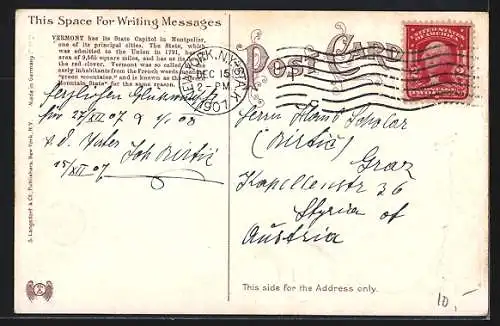 This Space For Writing Messages
VERMONT has its State Capitol in Montpelier,
one of its principal cities. The State, which
was admitted to the Union in 1791, has an
area of 9,565 square miles, and has as its
the red clover. Vermont was so called by
early inhabitants from the French words
"green mountains." and is known as the
Mountain State" for the same reason.
herzlichen
for 25/XII 07 & 1/1 08
15/XII 07
Made in Germany
S. Langsdorf & Co., Publishers, New York, N.Y.
NEW YORK, N.Y. STA. K
DEC 15
2-PM
1907
POST CARD
Herrn Hans
Graz
Kapellenstr 36
Styria of
Austria
This side for the Address only.
10,-